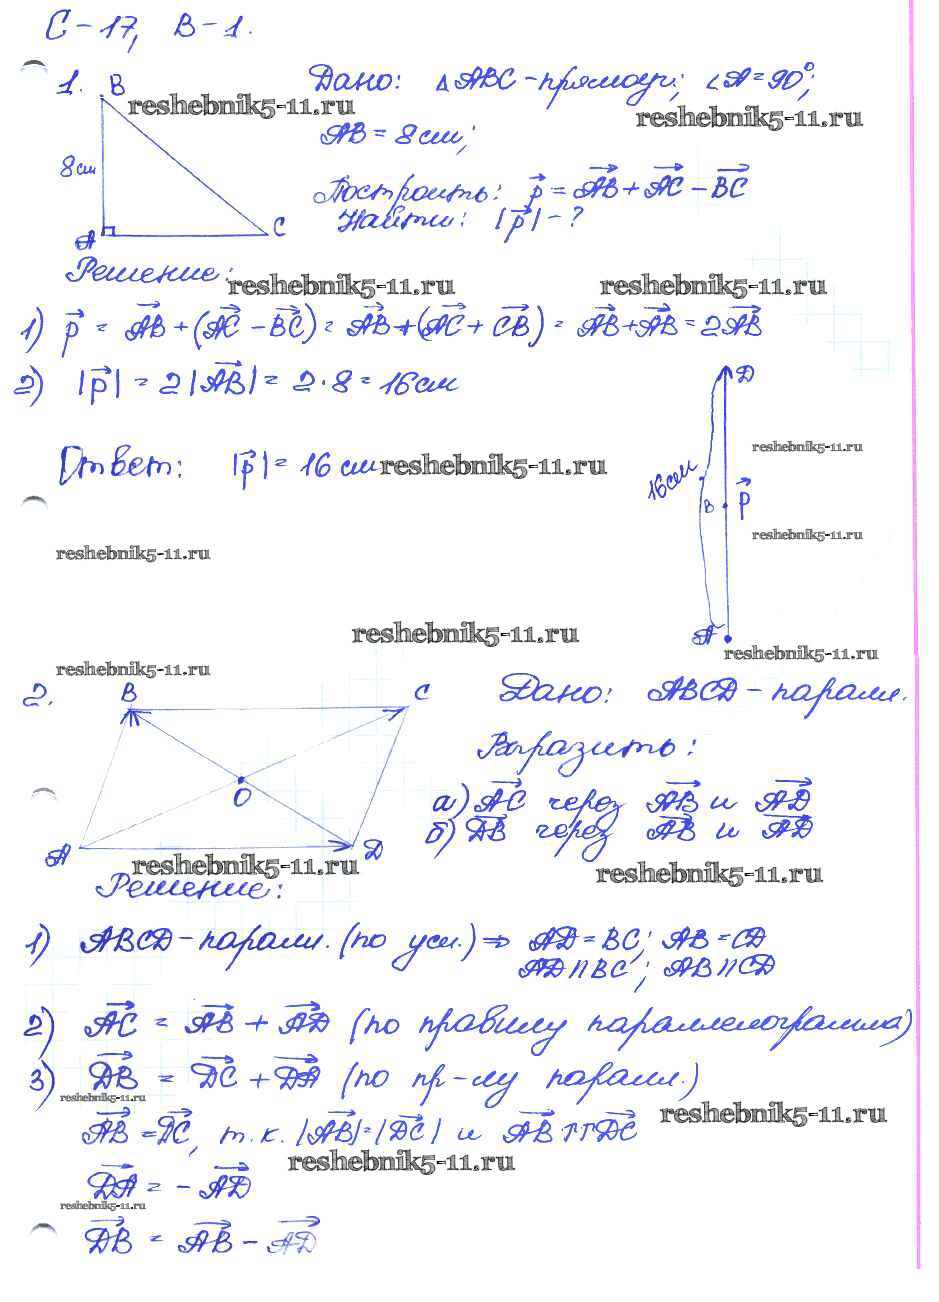 С-17, В-1.
1. B
Дано: △ABC-прямоуг; ∠A=90°;
reshebnik5-11.ru
reshebnik5-11.ru
AB=8см;
8см
Построить: p⃗ = AB⃗ + AC⃗ - BC⃗
A C
Найти: |p⃗| - ?
Решение:
reshebnik5-11.ru
reshebnik5-11.ru
1) p⃗ = AB⃗ + (AC⃗ - BC⃗) = AB⃗ + (AC⃗ + CB⃗) = AB⃗ + AB⃗ = 2AB⃗
2) |p⃗| = 2|AB⃗| = 2·8 = 16см
D
reshebnik5-11.ru
Ответ: |p⃗| = 16 см
reshebnik5-11.ru
16см
B p⃗
reshebnik5-11.ru
reshebnik5-11.ru
reshebnik5-11.ru
A
reshebnik5-11.ru
reshebnik5-11.ru
2. B C
Дано: ABCD-паралл.
Выразить:
O
а) AC⃗ через AB⃗ и AD⃗
б) DB⃗ через AB⃗ и AD⃗
A D
reshebnik5-11.ru
reshebnik5-11.ru
Решение:
1) ABCD-паралл. (по усл.) ⇒ AD=BC; AB=CD
AD∩BC; AB∩CD
2) AC⃗ = AB⃗ + AD⃗ (по правилу параллелограмма)
3) DB⃗ = DC⃗ + DA⃗ (по пр-лу паралл.)
reshebnik5-11.ru
reshebnik5-11.ru
AB⃗ = DC⃗, т.к. |AB⃗|=|DC⃗| и AB⃗ ↑↑ DC⃗
reshebnik5-11.ru
DA⃗ = - AD⃗
reshebnik5-11.ru
DB⃗ = AB⃗ - AD⃗